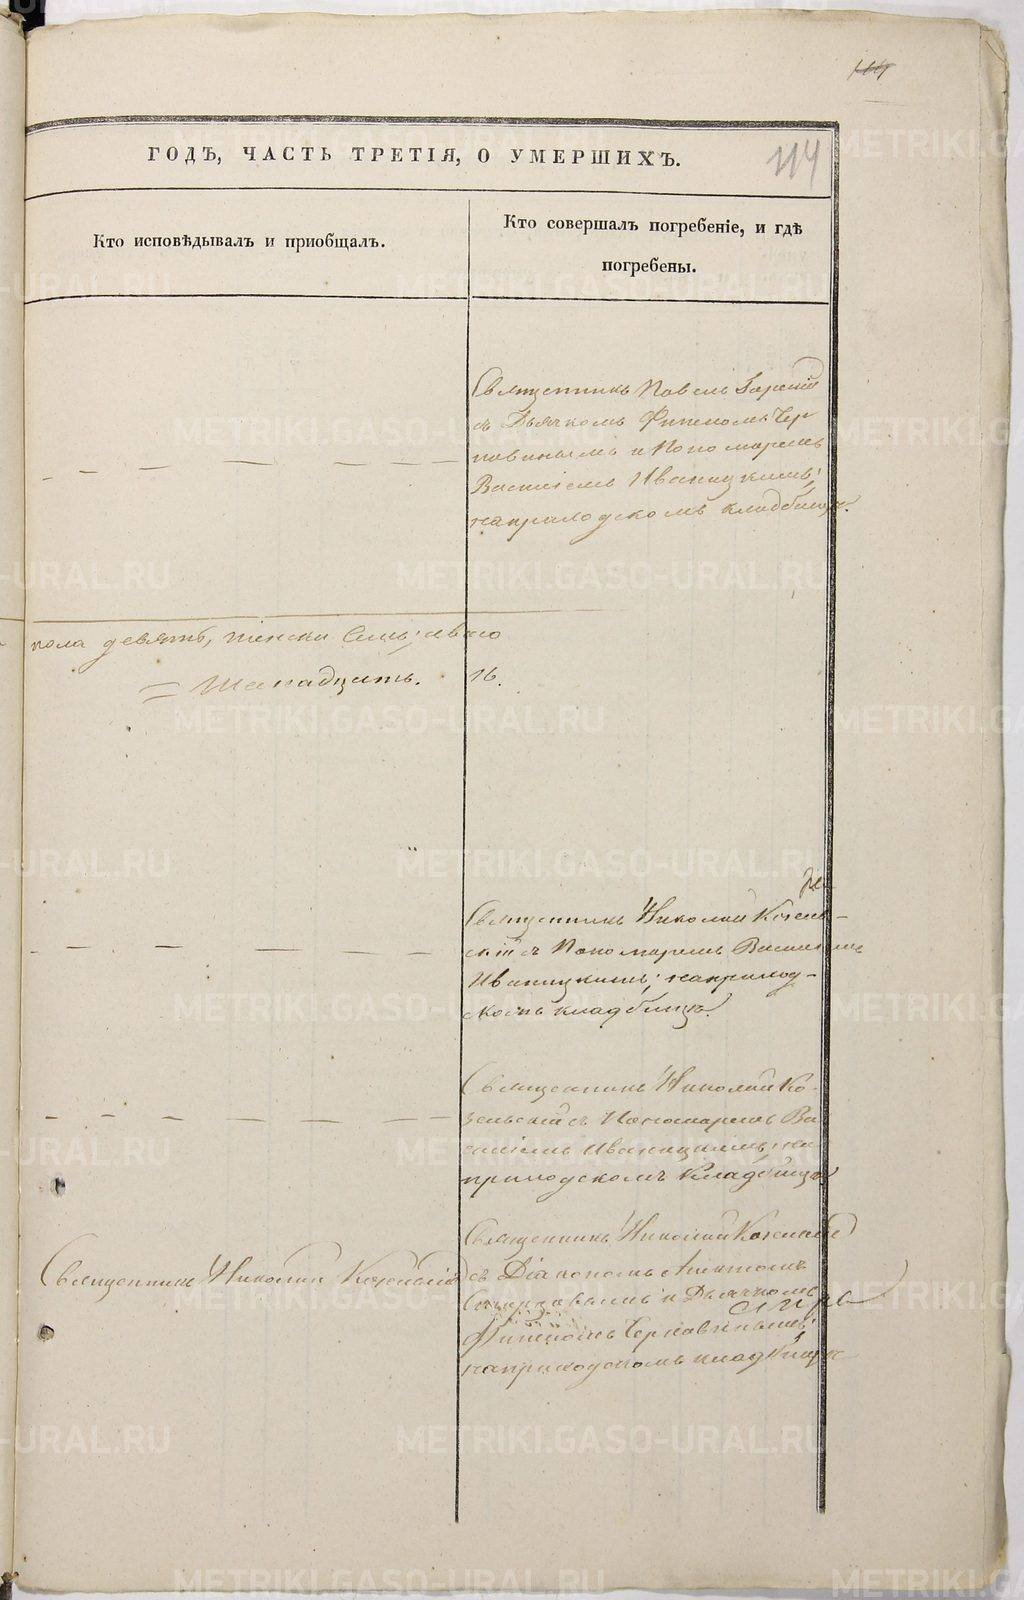 114
ГОДЪ, ЧАСТЬ ТРЕТІЯ, О УМЕРШИХЪ.
Кто исповѣдывалъ и приобщалъ.
Кто совершалъ погребеніе, и гдѣ
погребены.
Священникъ Павелъ
съ Дьячкомъ Филипомъ Чер
навинымъ и Пономаремъ
Василіемъ Иваницкимъ;
на приходскомъ кладбищѣ.
пола девять, женска Семь; а всего
= Шеснадцать. 16.
Священникъ Николай Козель-
скій съ Пономаремъ Василіемъ
Иваницкимъ; на приход-
скомъ кладбищѣ.
Священникъ Николай Ко-
зельскій съ Пономаремъ Ва
силіемъ Иваницкимъ; на
приходскомъ Кладбищѣ
Священникъ Николай Козельскій
Священникъ Николай Козельскій
съ Діакономъ
и Дьячкомъ
Филипомъ Чернавинымъ;
на приходскомъ кладбищѣ
METRIKI.GASO-URAL.RU